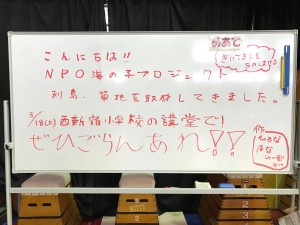 めあて
きいてる人を
たのしませる
こんにちは!!
NPO海の子プロジェクト
列島、築地を取材してきました。
3/18(土)西新宿小学校の講堂で!
ぜひごらんあれ!!
作